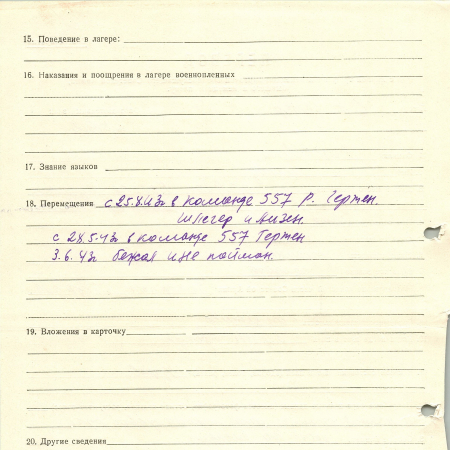 15. Поведение в лагере:
16. Наказания и поощрения в лагере военнопленных
17. Знание языков
18. Перемещения с 25.8.43г в команде 557 Р. Гертен.
и
с 28.5.43г в команде 557 Гертен
3.6.43г бежал и не пойман.
19. Вложения в карточку
20. Другие сведения